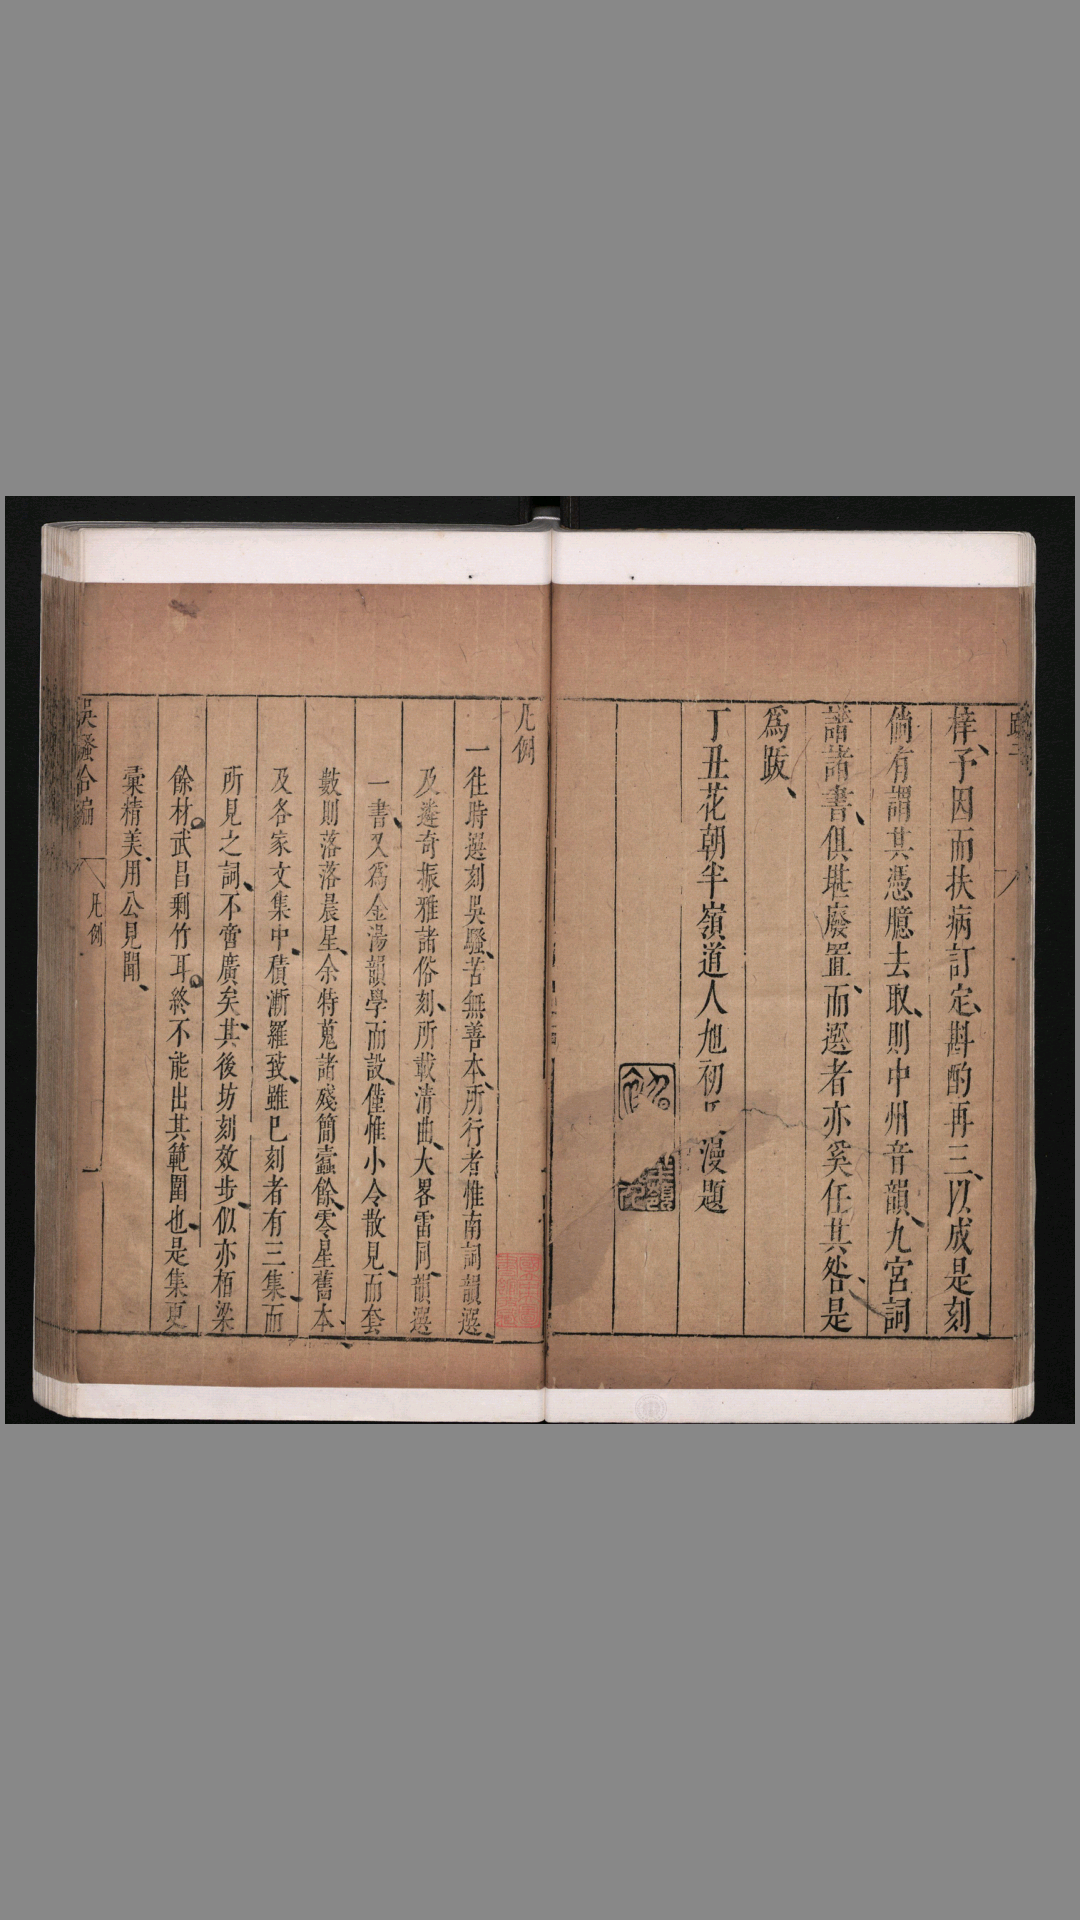 梓、予因而扶病訂定、斟酌再三、以成是刻
倘有謂其憑臆去取、則中州音韻、九宮詞
譜諸書、俱堪廢置、而選者亦奚任其咎、是
爲跋、
丁丑花朝半嶺道人旭初 漫題
凡例
一往時選刻吳騷、苦無善本、所行者惟南詞韻選、
及遴奇振雅諸俗刻、所載清曲、大畧雷同、韻選
一書、又爲金湯韻學而設、僅惟小令散見、而套
數則落落晨星、余特蒐諸殘簡蠹餘、零星舊本、
及各家文集中、積漸羅致、雖已刻者有三集、而
所見之詞、不啻廣矣、其後坊刻效步、似亦栢梁
餘材。武昌剩竹耳。終不能出其範圍也、是集更
彙精美、用公見聞、
吳騷合編
凡例
一